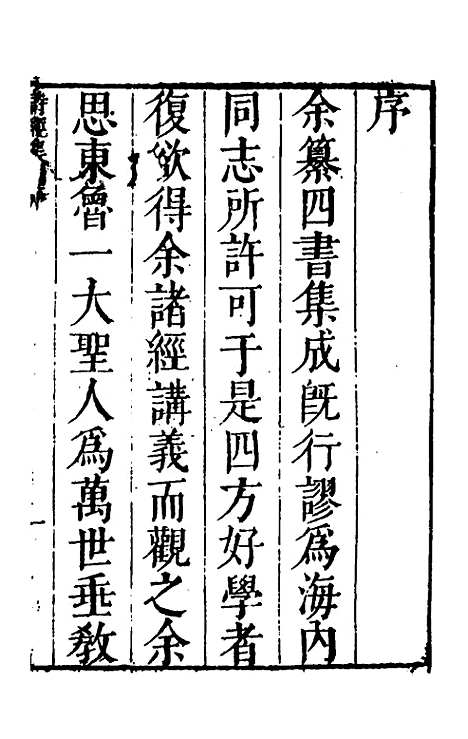 序
余纂四書集成旣行謬爲海内
同志所許可于是四方好學者
復欲得余諸經講義而觀之余
思東魯一大聖人爲萬世垂教